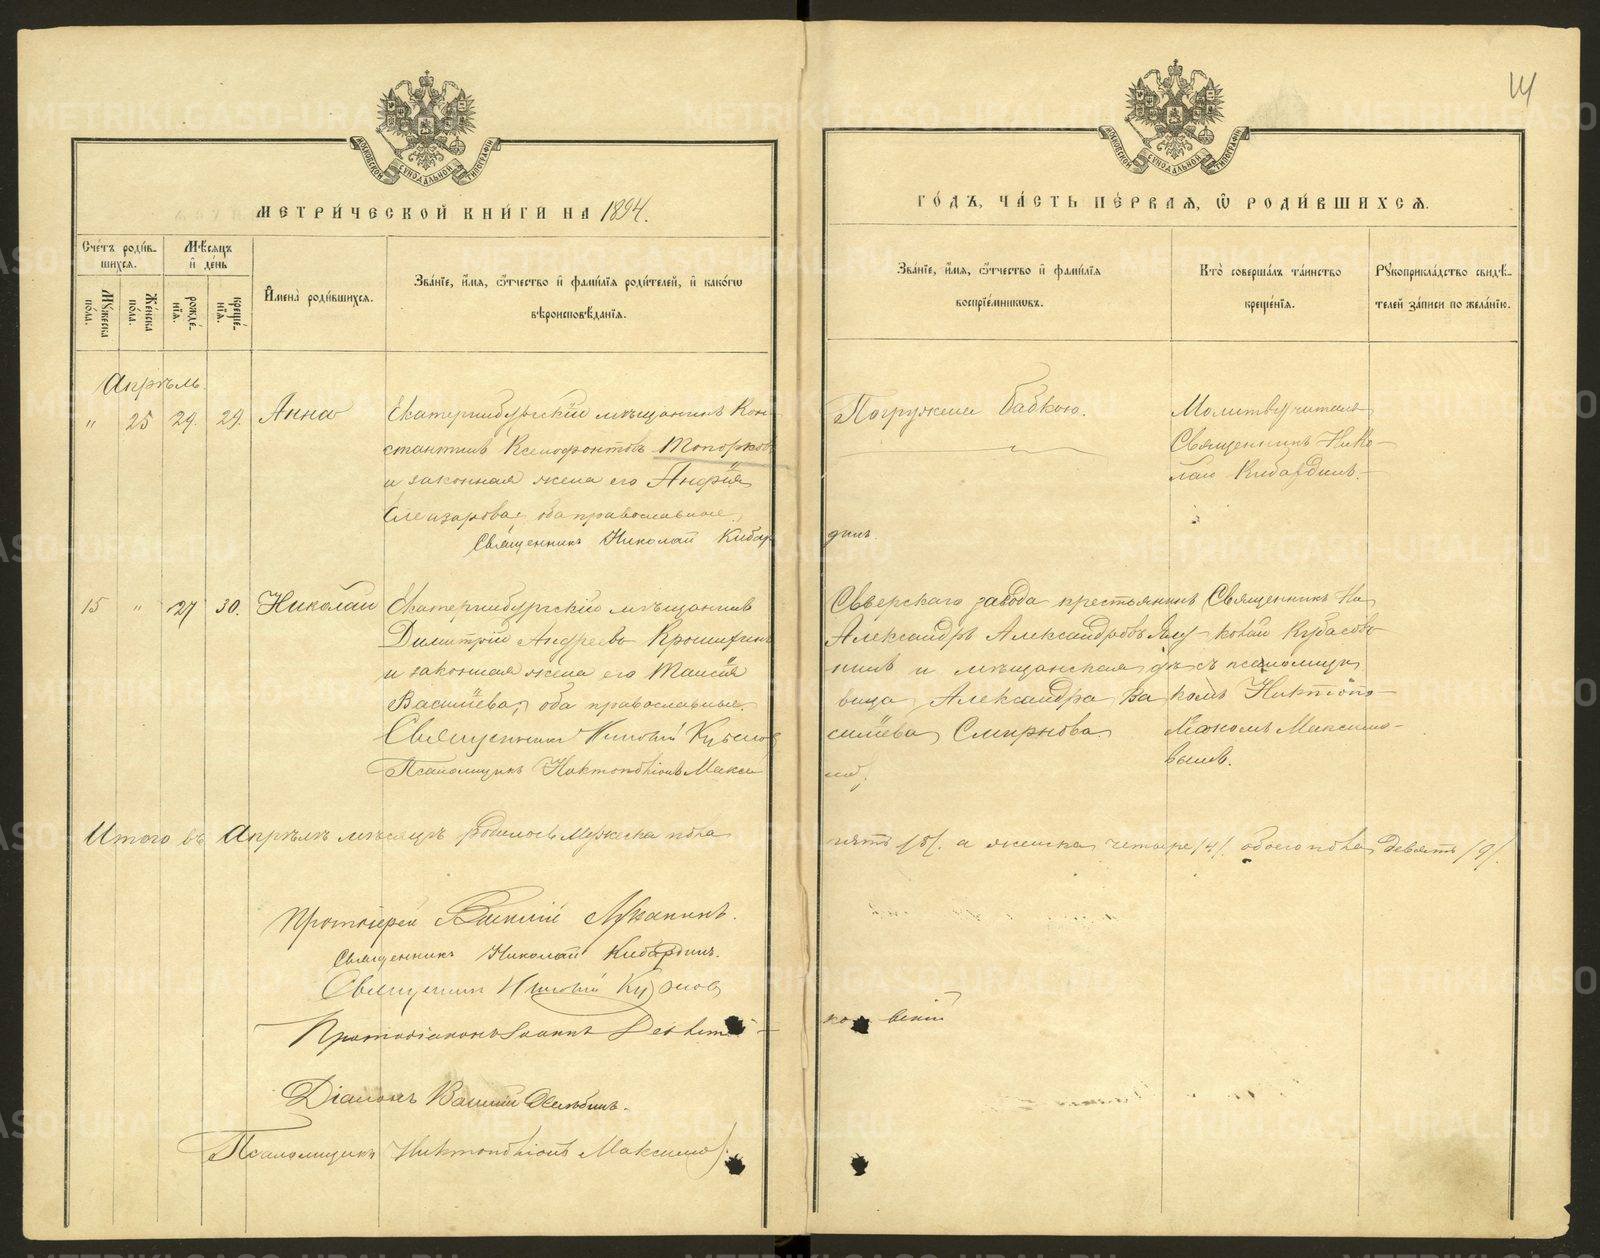 14
МОСКОВСКОЙ СѴНОДАЛЬНОЙ ТИПОГРАФІИ
МОСКОВСКОЙ СѴНОДАЛЬНОЙ ТИПОГРАФІИ
МЕТРИ́ЧЕСКОЙ КНИ́ГИ НА 1894.
ГО́ДЪ, ЧА́СТЬ ПЕ́РВАЯ, Ѡ РОДИ́ВШИХСЯ.
Сче́тъ роди́в-
шихся.
Мѣ́сяцъ
и де́нь
Му́жеска
по́ла.
Же́нска
по́ла.
рожде́-
нія.
креще́-
нія.
Имена̀ роди́вшихся.
Зва́ніе, и́мя, о́тчество и фами́лія роди́телей, и како́гѡ
вѣроисповѣ́данія.
Зва́ніе, и́мя, о́тчество и фами́лія
воспріе́мниковъ.
Кто̀ соверша́лъ та́инство
креще́нія.
Рукоприкла́дство свидѣ́-
телей за́писи по жела́нію.
Апрѣль.
" 25 29. 29. Анна
Екатеринбургскій мѣщанинъ Кон-
стантинъ Ксенофонтовъ Топорков
и законная жена его
Елеазарова, оба православные.
Священникъ Николай Кибар
динъ
Погружена бабкою.
Молитву читалъ
Священникъ Нико-
лай Кибардинъ.
15 " 27 30. Николай
Екатеринбургскій мѣщанинъ
Димитрій Андреевъ
и законная жена его Таисія
Васильева, оба православные.
Священникъ Николай
Псаломщикъ Максимо
въ.
завода крестьянинъ
Александръ Александровъ
нинъ и мѣщанская дѣ-
вица Александра Ва
сильева Смирнова.
Священникъ Ни
колай
съ псаломщи
комъ
Максимо-
вымъ.
Итого въ Апрѣлѣ мѣсяцѣ родилось Мужеска пола
пять /5/. а женска четыре /4/. обоего пола девять /9/.
Протоіерей Василій
Священникъ Николай Кибардинъ.
Священникъ Николай
Протодіаконъ Іоаннъ
Діаконъ Василій
Псаломщикъ Максимов.
METRIKI.GASO-URAL.RU